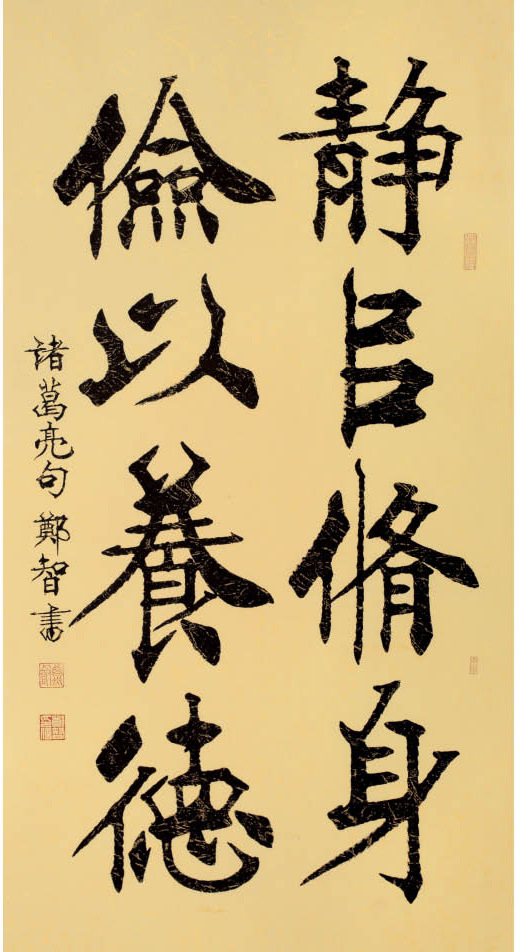 静㠯脩身
儉以養德
諸葛亮句 鄭智書